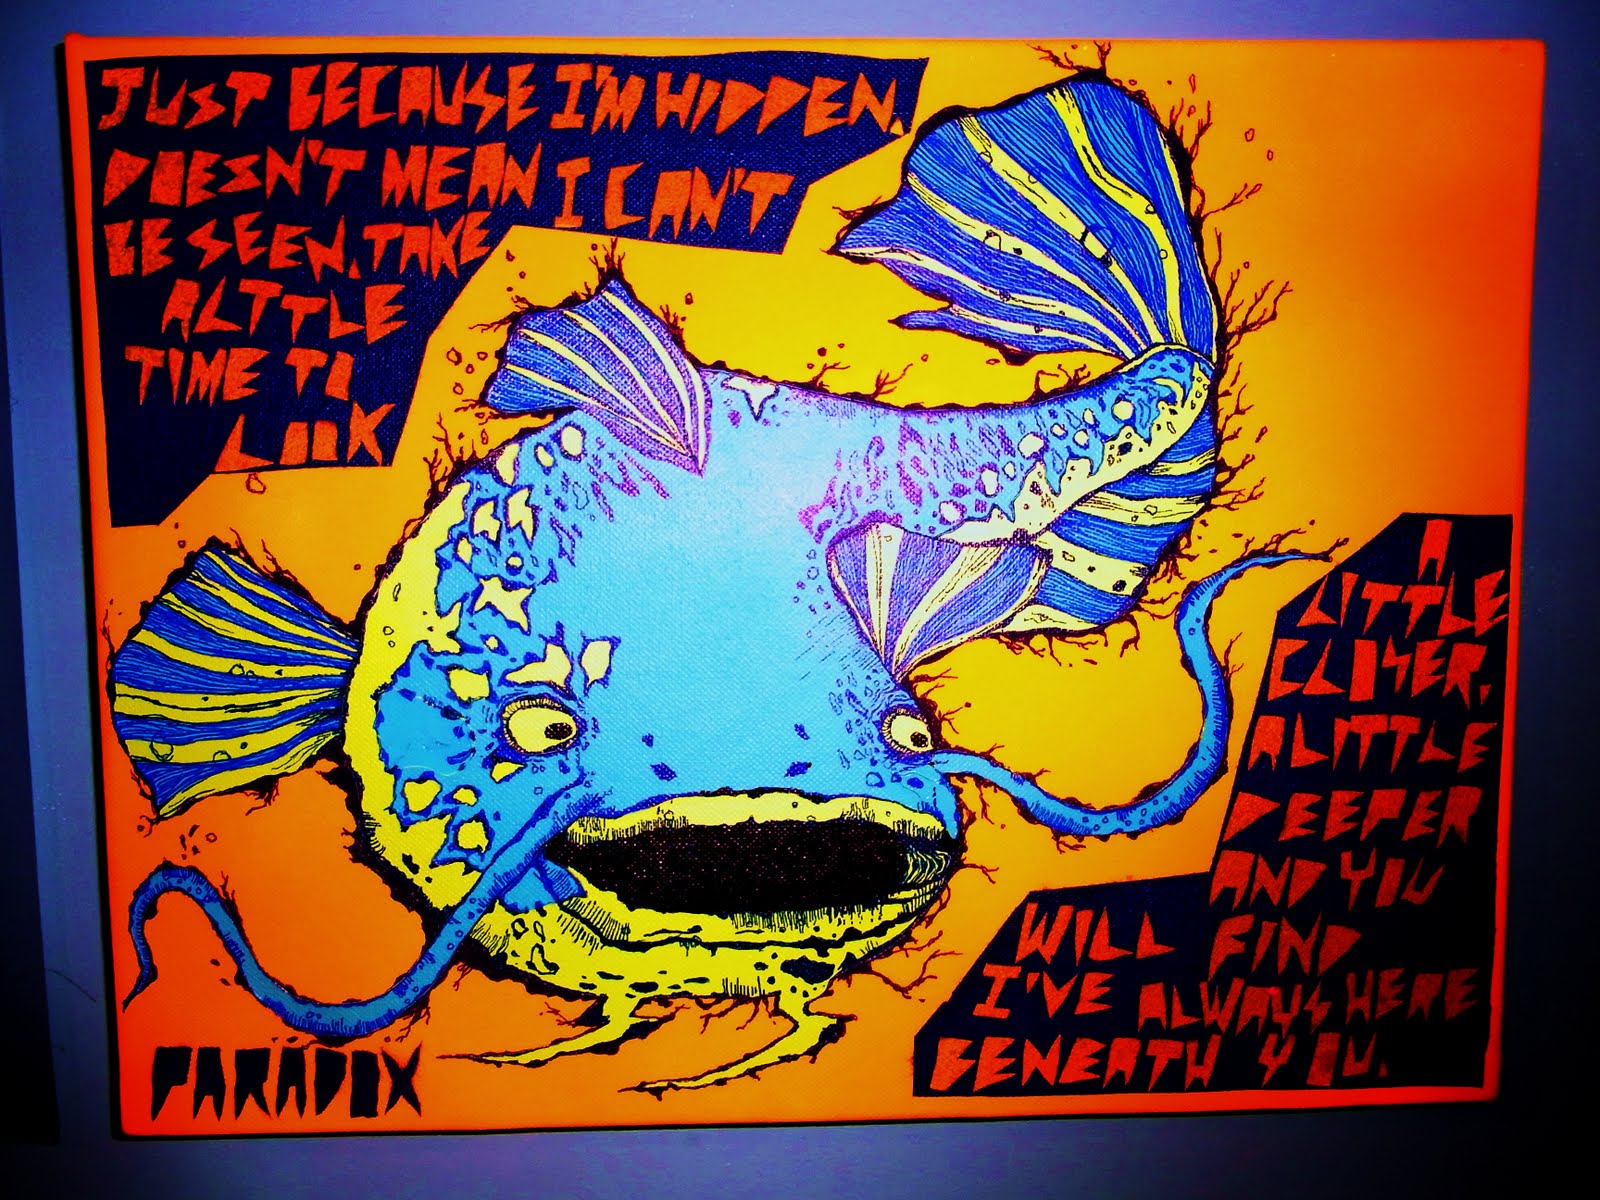 JUST BECAUSE I'M HIDDEN.
DOESN'T MEAN I CAN'T
BE SEEN. TAKE
A LITTLE
TIME TO
LOOK
A
LITTLE
CLOSER.
A LITTLE
DEEPER
AND YOU
WILL FIND
I'VE ALWAYS HERE
BENEATH YOU.
PARADOX